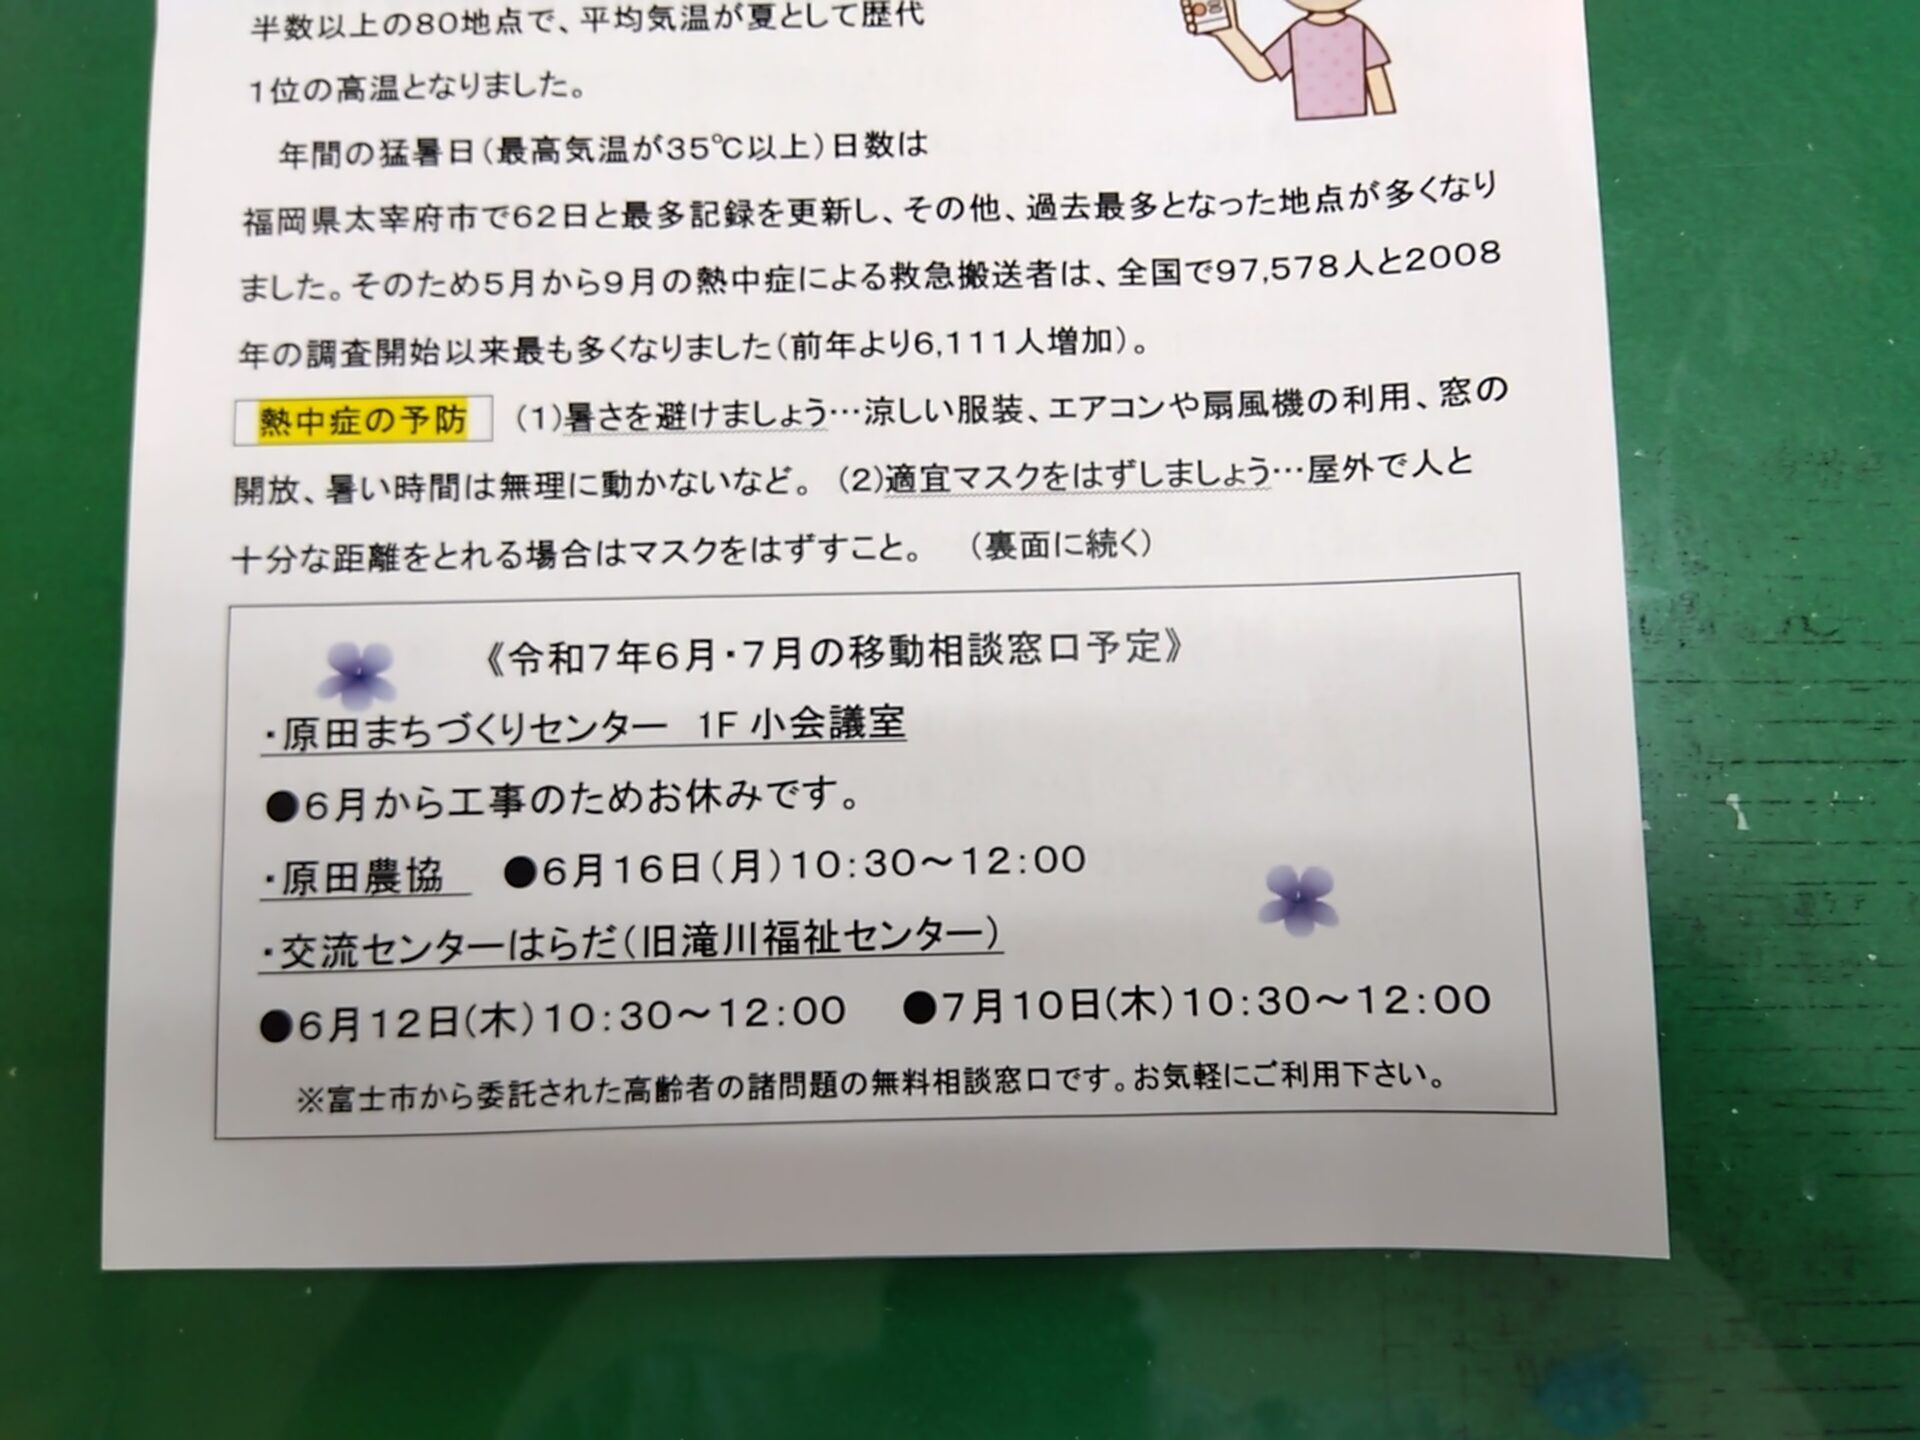 半数以上の80地点で、平均気温が夏として歴代
1位の高温となりました。
年間の猛暑日(最高気温が35℃以上)日数は
福岡県太宰府市で62日と最多記録を更新し、その他、過去最多となった地点が多くなり
ました。そのため5月から9月の熱中症による救急搬送者は、全国で97,578人と2008
年の調査開始以来最も多くなりました(前年より6,111人増加)。
熱中症の予防 (1)暑さを避けましょう…涼しい服装、エアコンや扇風機の利用、窓の
開放、暑い時間は無理に動かないなど。 (2)適宜マスクをはずしましょう…屋外で人と
十分な距離をとれる場合はマスクをはずすこと。 (裏面に続く)
《令和7年6月・7月の移動相談窓口予定》
・原田まちづくりセンター 1F 小会議室
●6月から工事のためお休みです。
・原田農協 ●6月16日(月)10:30～12:00
・交流センターはらだ(旧滝川福祉センター)
●6月12日(木)10:30～12:00 ●7月10日(木)10:30～12:00
※富士市から委託された高齢者の諸問題の無料相談窓口です。お気軽にご利用下さい。